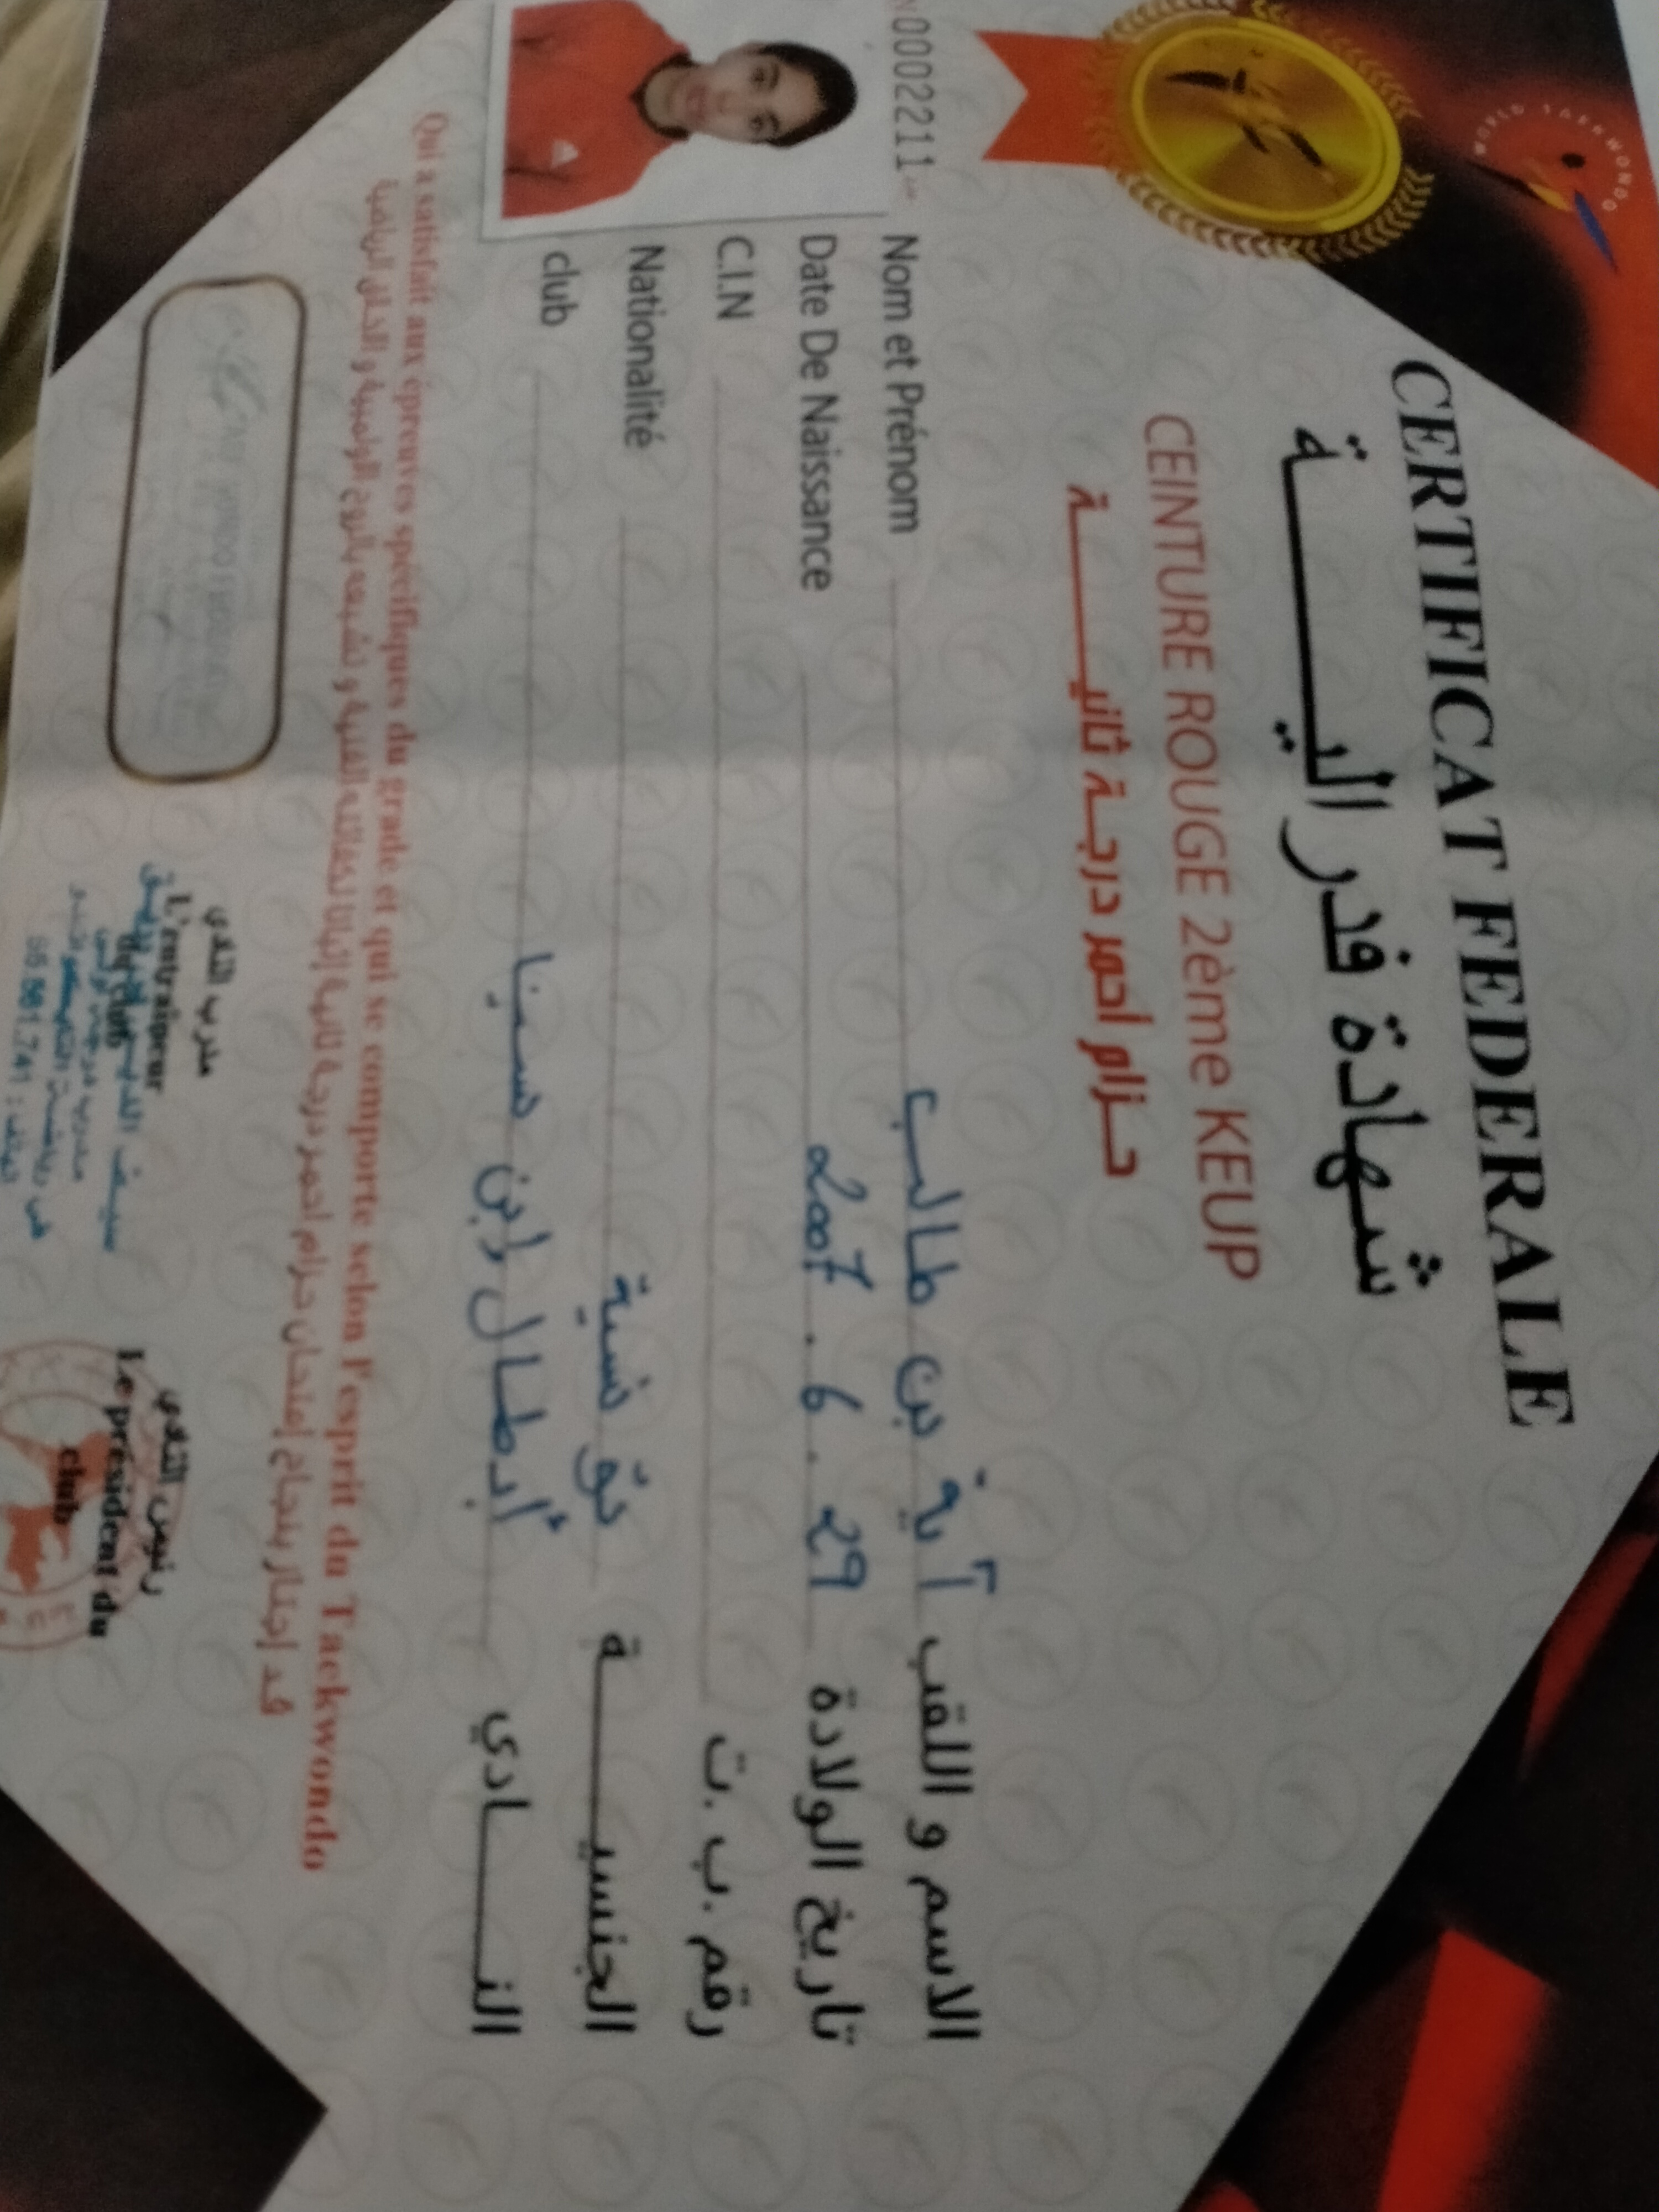 WORLD TAEKWONDO
CERTIFICAT FEDERALE
شهادة فدرالية
CEINTURE ROUGE 2ème KEUP
حزام أحمر درجة ثانية
0002211
Nom et Prénom آية بن طالب الاسم و اللقب
Date De Naissance 2007 . 6 . 29 تاريخ الولادة
C.I.N رقم .ب .ت
Nationalité تونسية الجنسية
club أبطال ابن سينا النادي
Qui a satisfait aux épreuves spécifiques du grade et qui se comporte selon l'esprit du Taekwondo
قد إجتاز بنجاح إمتحان حزام أحمر درجة ثانية إثباتا لكفائته الفنية و تشبعه بالروح الأولمبية و الأخلاق الرياضية
مدرب النادي
L'entraineur
du club
رئيس النادي
Le président du
club